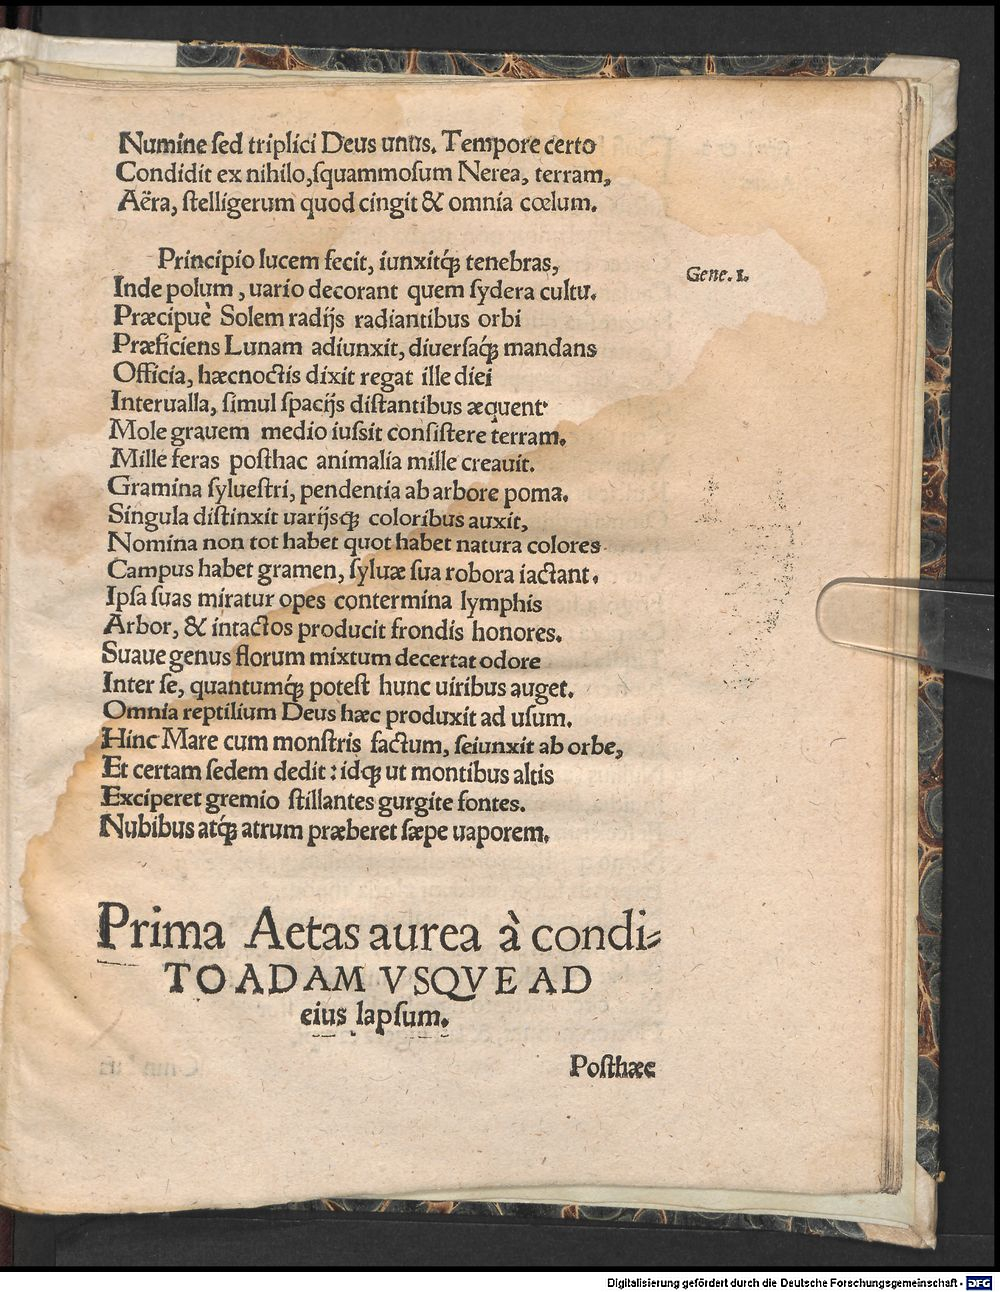 Numine ſed triplici Deus unus. Tempore certo
Condidit ex nihilo,ſquammoſum Nerea, terram,
Aëra, ſtelligerum quod cingit & omnia cœlum.
Principio lucem fecit, iunxitq́ꝫ tenebras,
Gene. 1.
Inde polum, uario decorant quem ſydera cultu.
Præcipuè Solem radijs radiantibus orbi
Præficiens Lunam adiunxit, diuerſaq́ꝫ mandans
Officia, hæcnoctis dixit regat ille diei
Interualla, ſimul ſpacijs diſtantibus æquent·
Mole grauem medio iuſsit conſiſtere terram.
Mille feras poſthac animalia mille creauit.
Gramina ſylueſtri, pendentia ab arbore poma.
Singula diſtinxit uarijsqꝫ coloribus auxit,
Nomina non tot habet quot habet natura colores
Campus habet gramen, ſyluæ ſua robora iactant.
Ipſa ſuas miratur opes contermina lymphis
Arbor, & intactos producit frondis honores.
Suaue genus florum mixtum decertat odore
Inter ſe, quantumq́ꝫ poteſt hunc uiribus auget.
Omnia reptilium Deus hæc produxit ad uſum.
Hinc Mare cum monſtris factum, ſeiunxit ab orbe,
Et certam ſedem dedit: idqꝫ ut montibus altis
Exciperet gremio ſtillantes gurgite fontes.
Nubibus atq́ꝫ atrum præberet ſæpe uaporem.
Prima Aetas aurea à condi⸗
TO ADAM VSQVE AD
eius lapſum.
Poſthæc
Digitalisierung gefördert durch die Deutsche Forschungsgemeinschaft - DFG